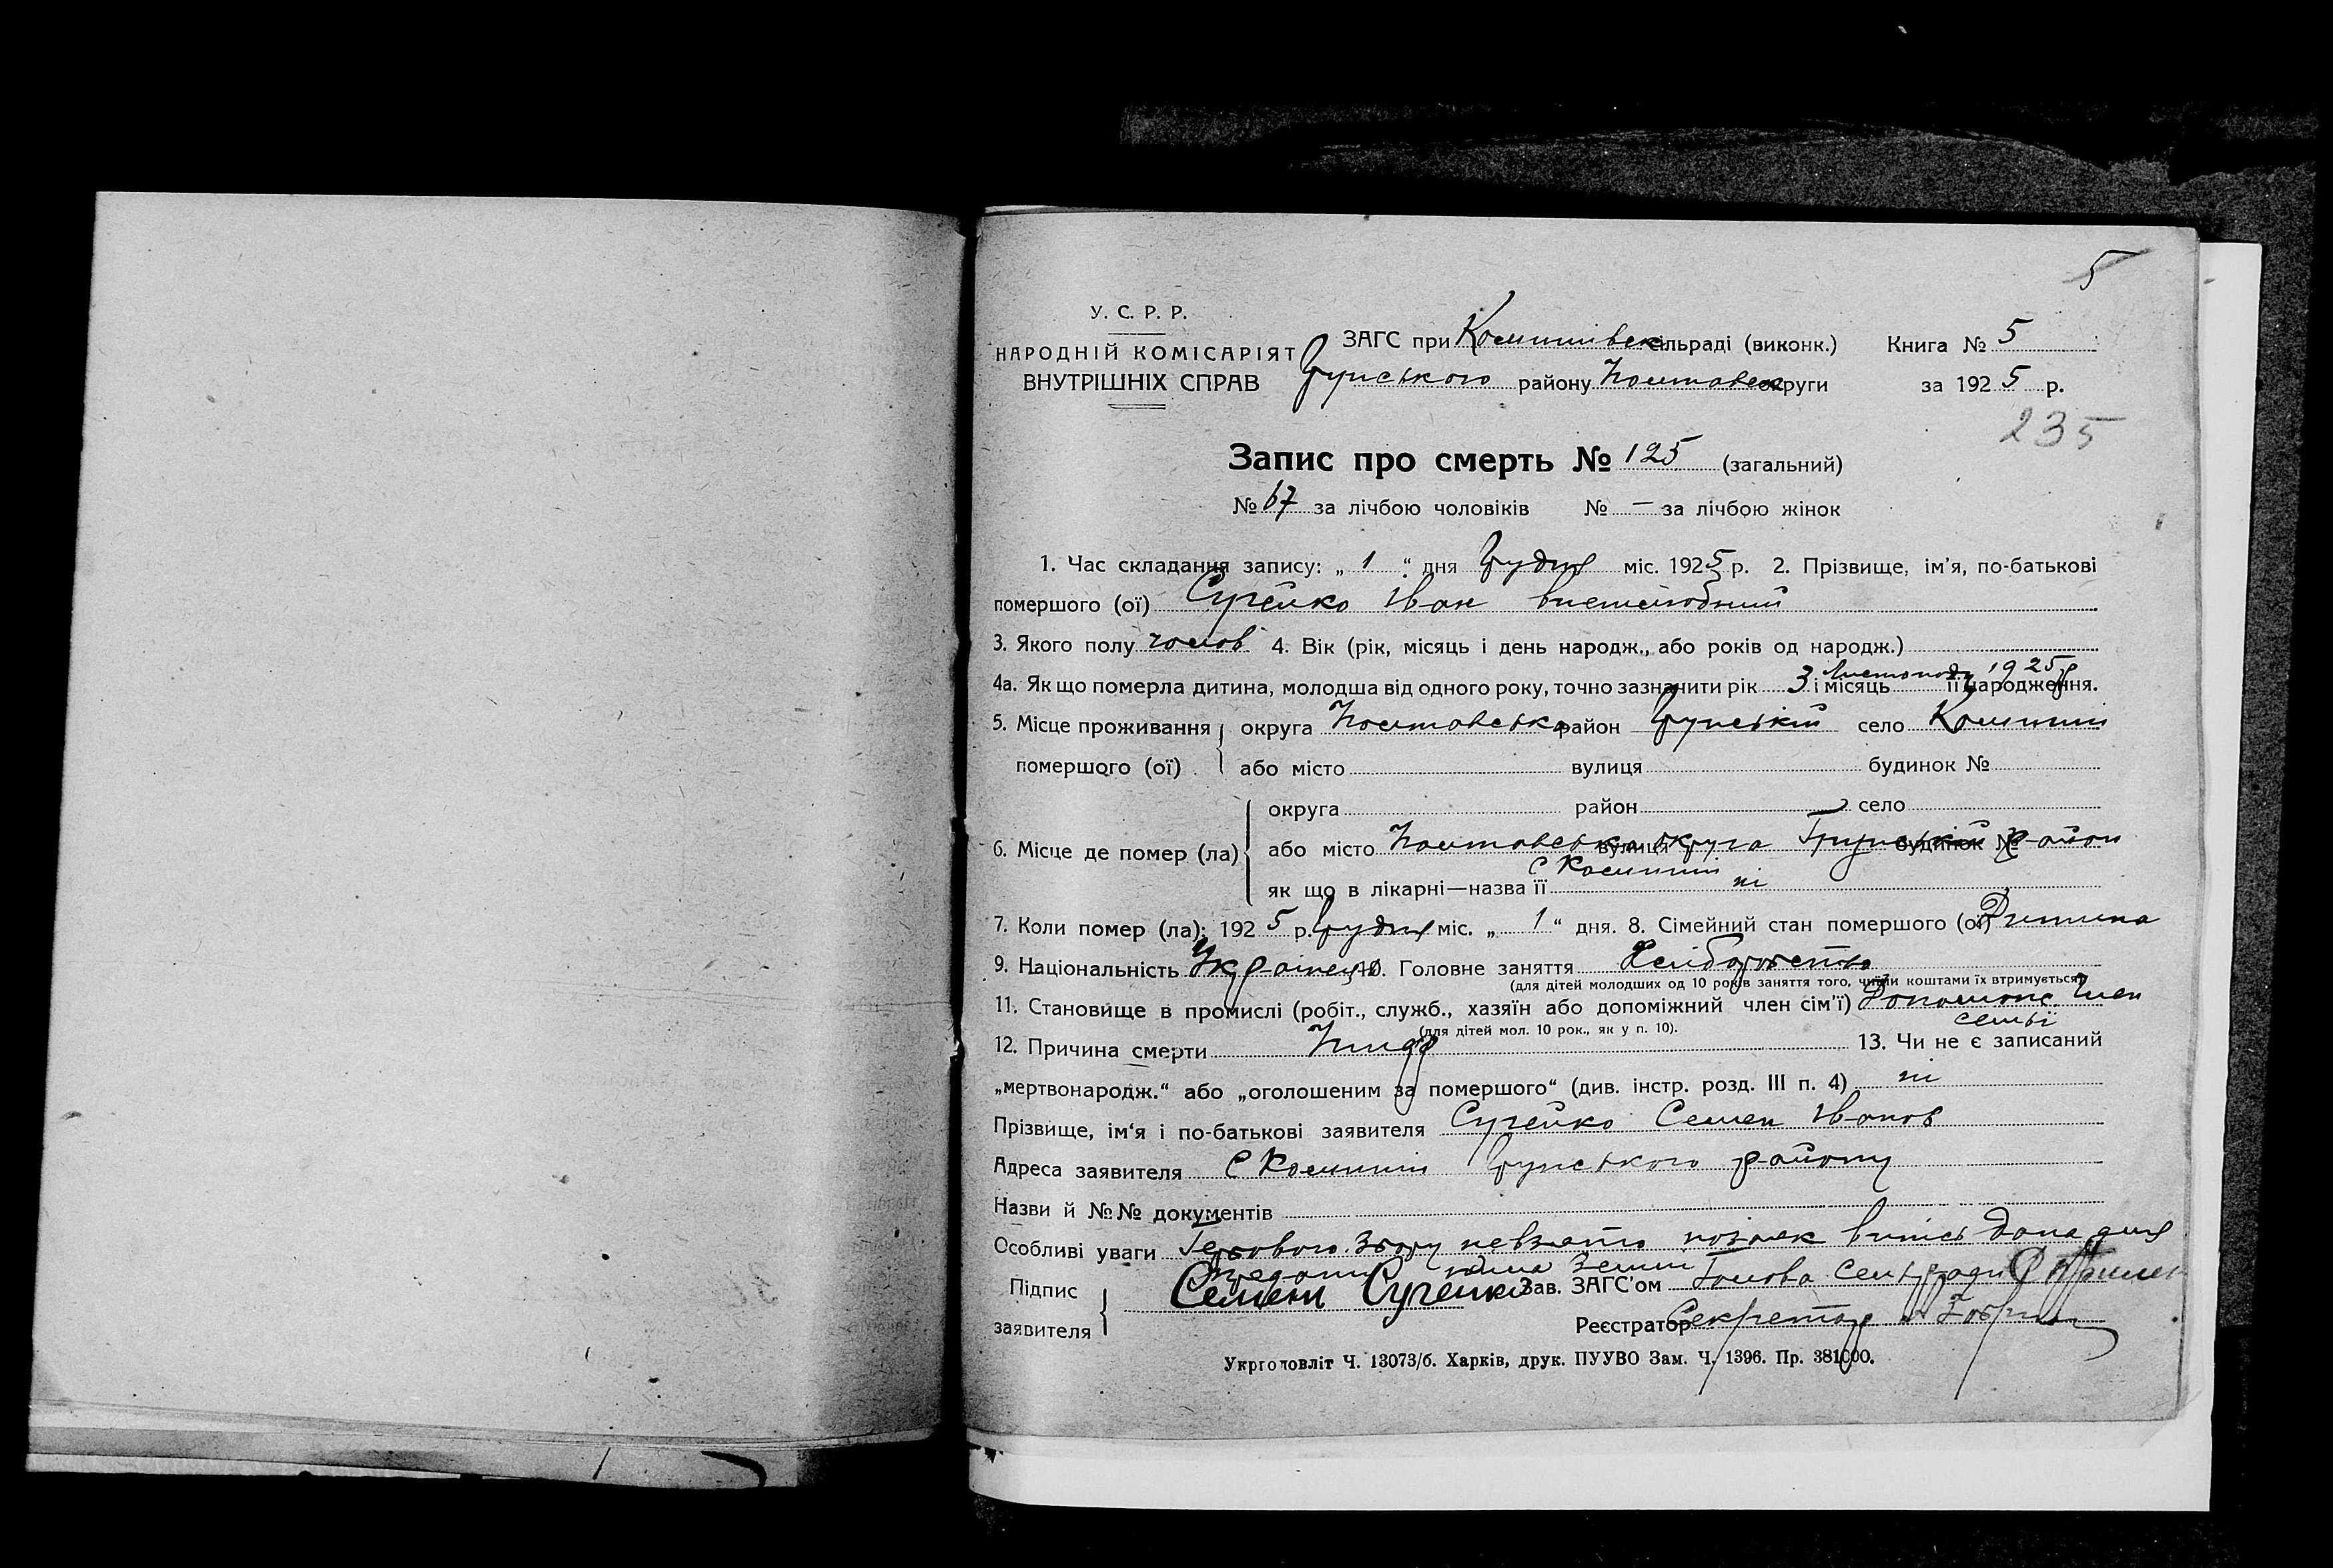 5
У. С. Р. Р.
НАРОДНІЙ КОМІСАРІЯТ
ВНУТРІШНІХ СПРАВ
ЗАГС при Комишівск сільраді (виконк.) Книга № 5
Грунського району Полтавськ округи за 1925 р.
235
Запис про смерть № 125 (загальний)
№ 67 за лічбою чоловіків № — за лічбою жінок
1. Час складання запису: „ 1 “ дня Грудня міс. 1925 р. 2. Прізвище, ім'я, по-батькові
померщого (ої) Сугейко Іван
3. Якого полу чолов 4. Вік (рік, місяць і день народж., або років од народж.)
4а. Як що померла дитина, молодша від одного року, точно зазначити рік 3 і місяць Листопаду 1925 р її народження.
5. Місце проживання округа Полтавська район Грунській село Комиші
померщого (ої) або місто вулиця будинок №
округа район село
6. Місце де помер (ла) або місто Полтавська округа вулиця Грунській будинок № район
с Комиші
як що в лікарні—назва її ні
7. Коли помер (ла): 1925 р. Грудня міс. „ 1 “ дня. 8. Сімейний стан померщого (ої) Дитина
9. Національність Українець 10. Головне заняття Хліборобство
(для дітей молодших од 10 років заняття того, чиїми коштами їх втримується)
11. Становище в промислі (робіт., служб., хазяїн або допоміжний член сім'ї) Допоможе. член
семьї
(для дітей мол. 10 рок., як у п. 10).
12. Причина смерти 13. Чи не є записаний
„мертвонародж.“ або „оголошеним за померщого“ (див. інстр. розд. III п. 4) ні
Прізвище, ім'я і по-батькові заявителя Сугейко Семен Іванов
Адреса заявителя С Комиші Грунського району
Назви й №№ документів
Особливі уваги Гербового збору невзято
Підпис
заявителя
Семен Сугейко Зав. ЗАГС'ом Голова Сельради
Реєстратор Секретар
Укрголовліт Ч. 13073/б. Харків, друк. ПУУВО Зам. Ч. 1396. Пр. 381000.